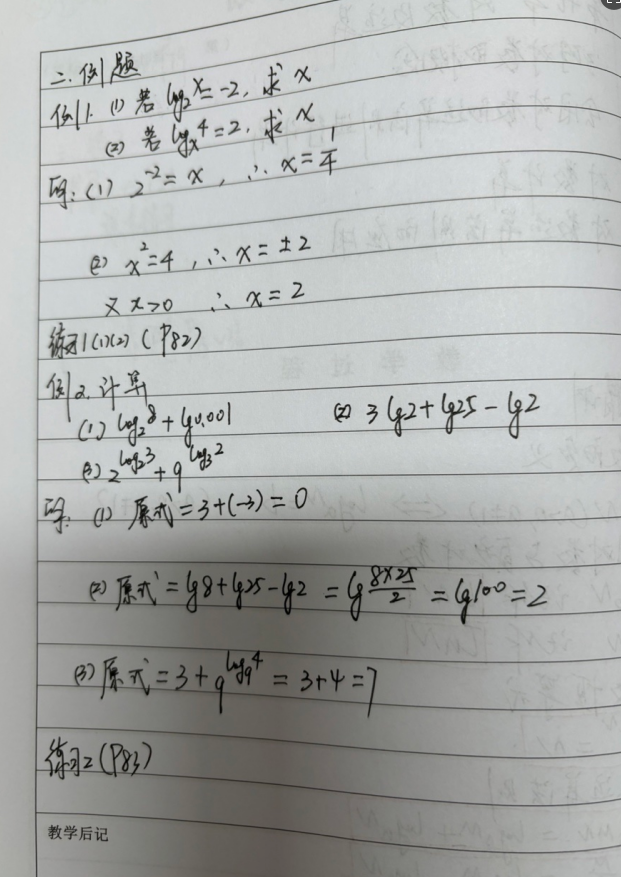 二. 例题
例1. (1) 若 log₂x = -2, 求 x
(2) 若 logₓ4 = 2, 求 x
解: (1) 2⁻² = x , ∴ x = 1/4
(2) x² = 4 , ∴ x = ±2
又 x>0 ∴ x = 2
练习1(1)(2) (P82)
例2. 计算
(1) log₂8 + lg0.001 (2) 3lg2+lg25-lg2
(3) 2^log₂3 + 9^log₃2
解: (1) 原式 = 3+(-3) = 0
(2) 原式 = lg8+lg25-lg2 = lg 8×25/2 = lg100 = 2
(3) 原式 = 3+9^log₉4 = 3+4 = 7
练习2 (P83)
教学后记